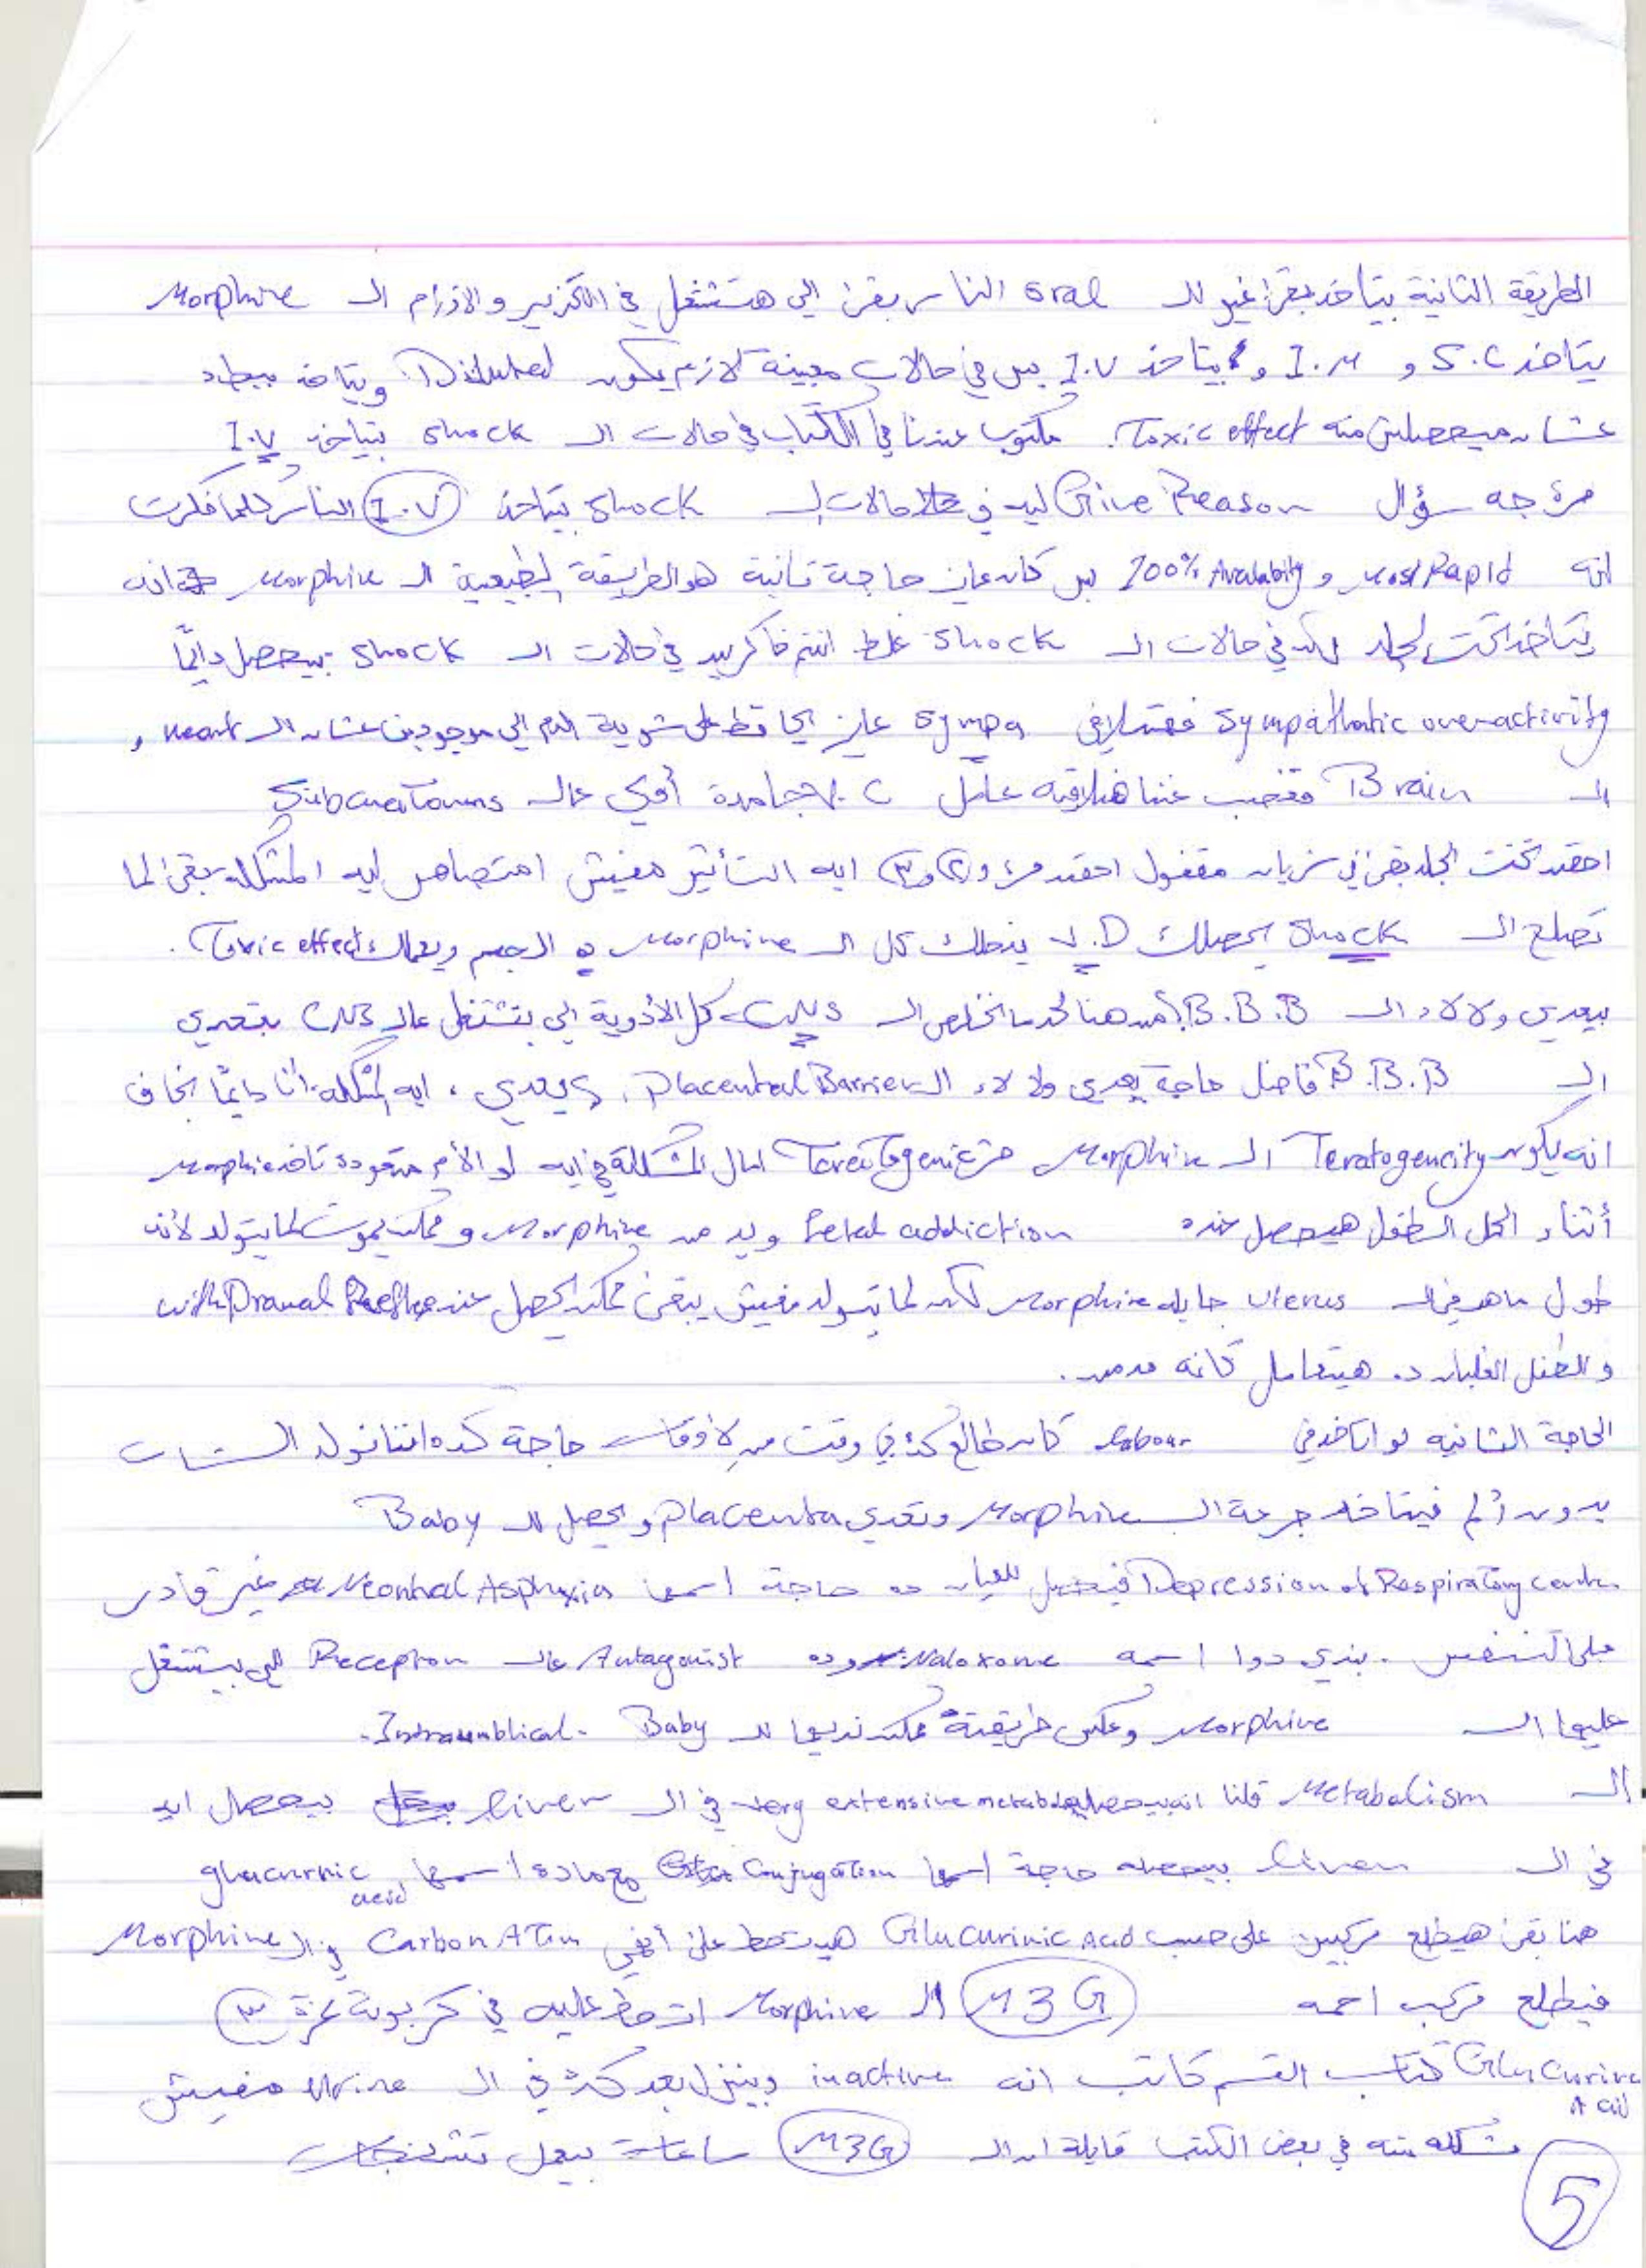 الطريقة التانية بيتاخد بقى غير الـ oral الناس بقى الي هتشتغل في التخدير والاورام الـ Morphine
يتاخد S.C و I.M و بيتاخد I.V بس في حالات معينة لازم يكون Diluted ويتاخد ببطء
عشان ميحصلش منه Toxic effect. مكتوب عندنا في الكتاب في حالات الـ shock بيتاخد I.V
مرة جه سؤال Give Reason ليه في حالات الـ shock يتاخد I.V الناس كلها فكرت
انه most Rapid و 100% Avalabity بس كان عايز حاجة تانية هو الطريقة الطبيعية الـ Morphine انه
يتاخد تحت الجلد لكن في حالات الـ shock غلط انتم فاكرين في حالات الـ shock بيحصل دايمًا
sympathatic overactivity فهتلاقي sympa عايز يحافظ على شوية الدم الي موجودين عشان الـ heart و
الـ Brain فغصب عننا هتلاقيه عامل V.C جامدة أوي عالـ Subcuetanus
احقن تحت الجلد بقى في شريان مقفول احقن مرة و ٢ و ٣ ايه التأثير مفيش امتصاص ليه المشكلة بقى لما
تصلح الـ Shock يحصلك V.D يدخلك كل الـ Morphine الجسم ويعملك Toxic effect.
بيعدي ولا لاء الـ B.B.B من هنا لحد ما نخلص الـ CNS كل الأدوية الي بتشتغل عالـ CNS بتعدي
الـ B.B.B فاضل حاجة يعدي ولا لاء الـ Placental Barrier, يعدي، ايه المشكلة انا دايمًا بخاف
انه يكون Teratogencity الـ Morphine مش Teratogenic امال المشكلة في ايه لو الأم متعودة تاخد Morphie
أثناء الحمل الطفل هيحصل عنده fetal addiction ويدمن Morphine و ممكن يموت لما يتولد لأنه
طول ما هو في الـ uterus جايله Morphine لكن لما يتولد مفيش يبقى ممكن يحصل عنده withDrawal
والطفل الغلبان ده هيتعامل كأنه مدمن.
الحاجة التانيه لو اتاخد في labour كان طالع كده في وقت من الأوقات حاجة كده اننا نولد الستات
بدون ألم فيتاخد جرعة الـ Morphine وتعدي placenta و يحصل للـ Baby
Depression of Respiratory center فيحصل للعيان ده حاجة اسمها Neontal Asphyxia غير قادر
على التنفس. بندي دوا اسمه Naloxone وده Antagonist عالـ Receptor الي بيشتغل
عليها الـ Morphine وعلى طريقة ممكن نديها للـ Baby Intraumblical.
الـ Metabolism قلنا انه بيحصله very extensive metabolism في الـ liver بيحصل ايه
في الـ liver بيحصله حاجة اسمها Conjugation مع مادة اسمها glucurnic acid
هنا بقى هيطلع مركبين على حسب Glucurinic Acid هيتحط على أنهي Carbon ATom في الـ Morphine
فيطلع مركب اسمه M3G الـ Morphine اتحط عليه في كربونة نمرة ٣
Glucurinc Acid كتاب القسم كاتب انه inactive وبينزل بعد كده في الـ urine مفيش
مشكلة منه في بعض الكتب قايلة ان الـ M3G ساعات بيعمل تشنجات
5